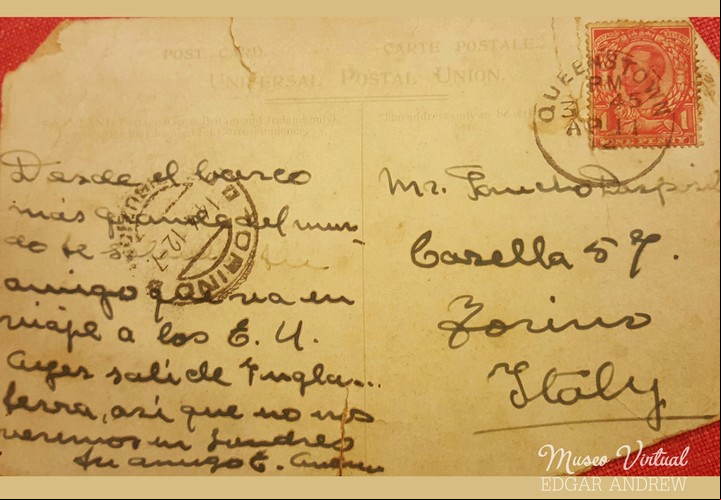 POST CARD. CARTE POSTALE.
UNIVERSAL POSTAL UNION.
QUEENSTOWN
PM
45
AP 11
12
1 1
PENNY
TORINO
Desde el barco
más grande del mun-
do te saluda tu
amigo que va en
viaje a los E. U.
Ayer salí de Ingla-
terra, así que no nos
veremos en Londres
tu amigo E.
Mr.
Casella 57.
Torino
Italy
Museo Virtual
EDGAR ANDREW